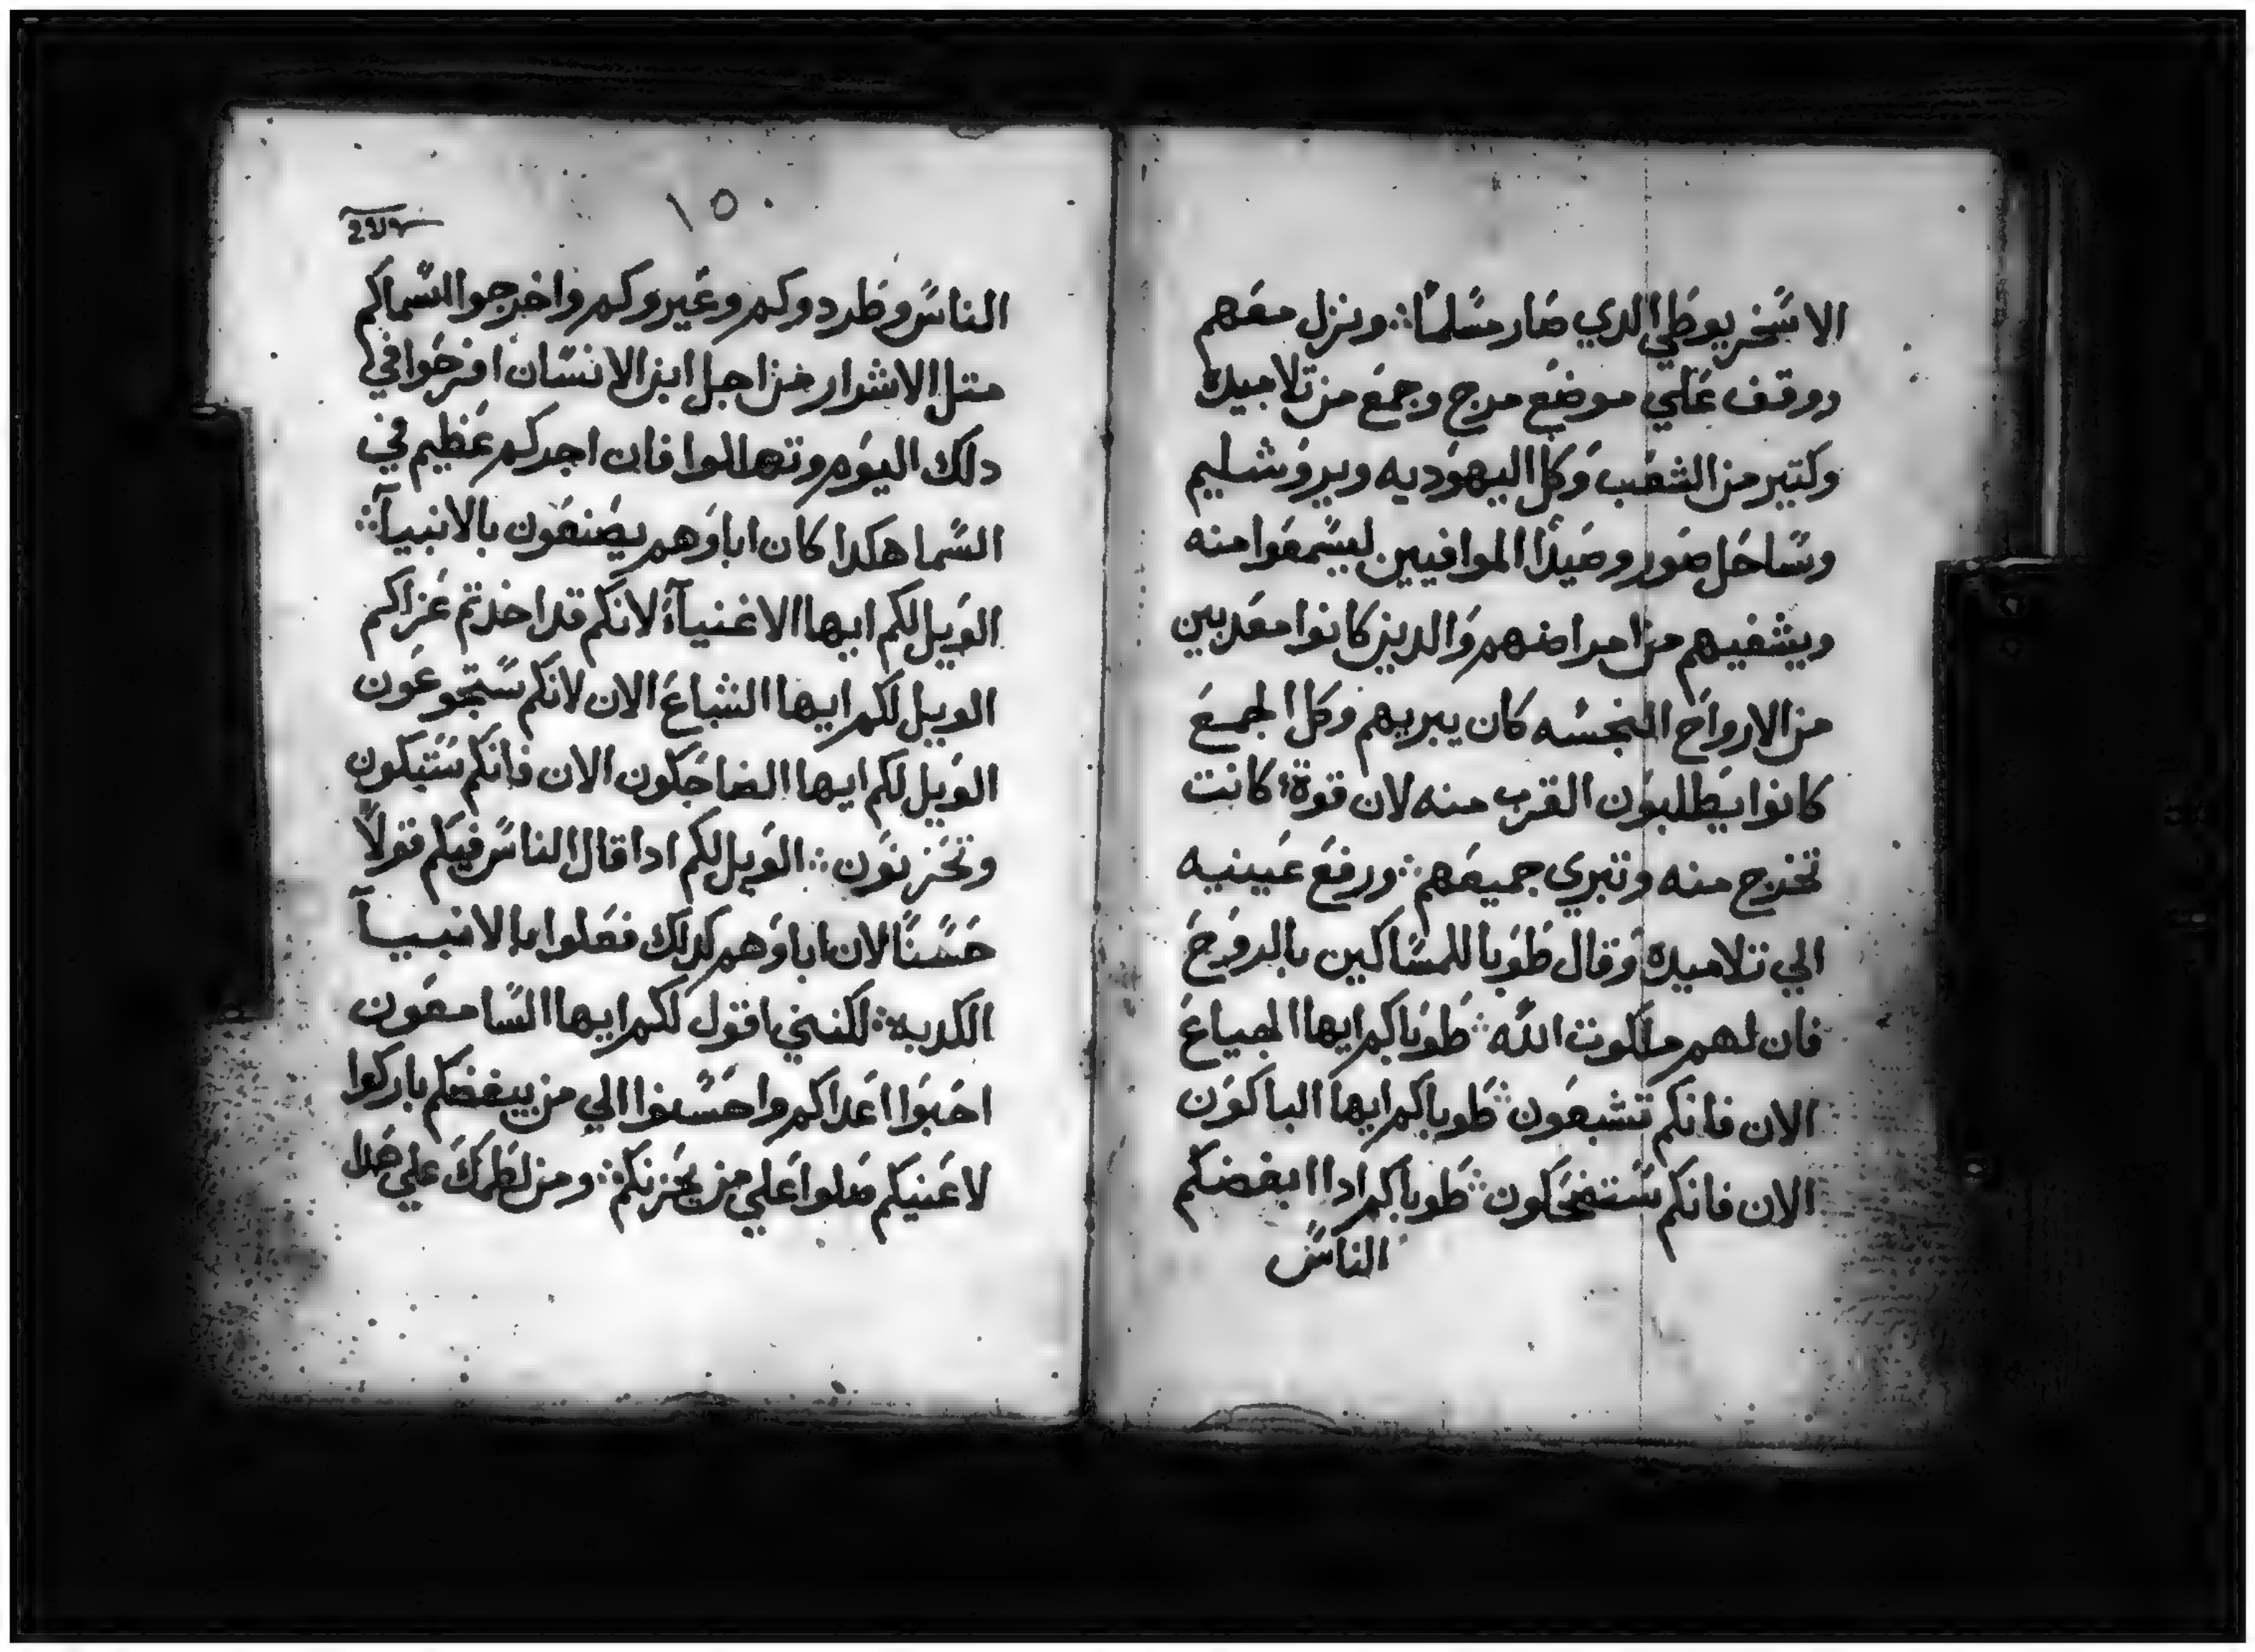 الاسخريوطي الدي صار مسلما ∴ ونزل معهم
ووقف علي موضع مرج وجمع من تلاميده
وكتير من الشعب وكل اليهوديه ويروشليم
وساحل صور وصيدا الموافيين ليسمعوا منه
ويشفيهم من امراضهم والدين كانوا معدبين
من الارواح النجسه كان يبريهم وكل الجمع
كانوا يطلبون القرب منه لان قوة كانت
تخرج منه وتبري جميعهم ∴ ورفع عينيه
الي تلاميده وقال طوبا للمساكين بالروح
فان لهم ملكوت الله ∴ طوباكم ايها الجياع
الان فانكم تشبعون ∴ طوباكم ايها الباكون
الان فانكم ستضحكون ∴ طوباكم ادا ابغضكم
الناس
١٥٠
الناس وطردوكم وعيروكم واخرجوا اسماكم
متل الاشرار من اجل ابن الانسان افرحوا في
دلك اليوم وتهللوا فان اجركم عظيم في
السما هكدا كان اباوهم يصنعون بالانبيآ ∴
الويل لكم ايها الاغنيآ لانكم قد اخدتم عزاكم
الويل لكم ايها الشباع الان لانكم ستجوعون
الويل لكم ايها الضاحكون الان فانكم ستبكون
وتحزنون ∴ الويل لكم ادا قال الناس فيكم قولاً
حسنا لان اباوهم كدلك فعلوا بالانبيآ
الكدبه ∴ لكنني اقول لكم ايها السامعون
احبوا اعداكم واحسنوا الي من يبغضكم باركوا
لاعنيكم صلوا علي من يحزنكم ∴ ومن لطمك علي خدك